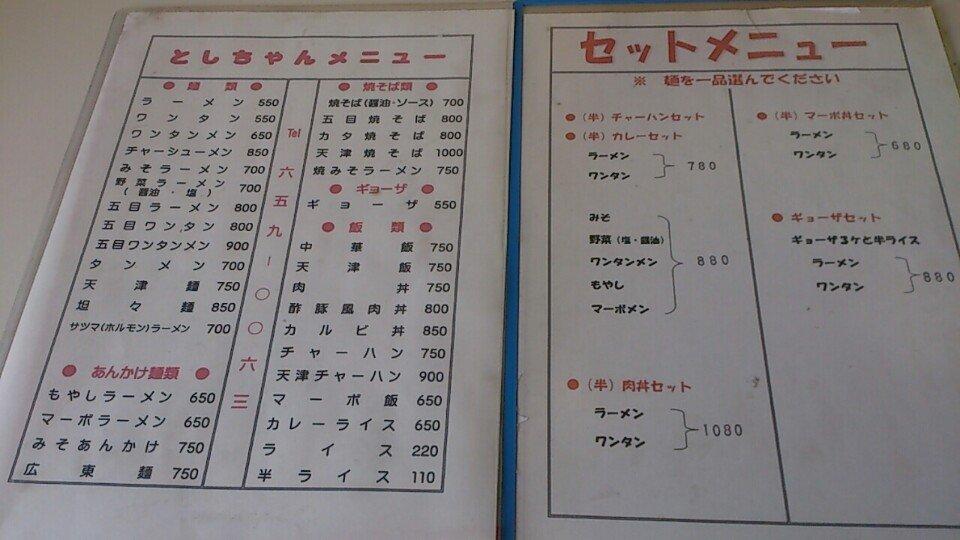 としちゃんメニュー
● 麺 類 ●
ラーメン 550
ワンタン 550
ワンタンメン 650
チャーシューメン 850
みそラーメン 700
野菜ラーメン
(醤油・塩) 700
五目ラーメン 800
五目ワンタン 800
五目ワンタンメン 900
タンメン 700
天津麺 750
坦々麺 850
サツマ(ホルモン)ラーメン 700
● あんかけ麺類 ●
もやしラーメン 650
マーボラーメン 650
みそあんかけ 750
広東麺 750
Tel 六五九ー〇〇六三
● 焼そば類 ●
焼そば(醤油・ソース) 700
五目焼そば 800
カタ焼そば 800
天津焼そば 1000
焼みそラーメン 750
● ギョーザ ●
ギョーザ 550
● 飯 類 ●
中華飯 750
天津飯 750
肉丼 750
酢豚風肉丼 800
カルビ丼 850
チャーハン 750
天津チャーハン 900
マーボ飯 650
カレーライス 650
ライス 220
半ライス 110
セットメニュー
※ 麺を一品選んでください
● (半) チャーハンセット
● (半) カレーセット
ラーメン
ワンタン
780
みそ
野菜(塩・醤油)
ワンタンメン
もやし
マーボメン
880
● (半) 肉丼セット
ラーメン
ワンタン
1080
● (半) マーボ丼セット
ラーメン
ワンタン
680
● ギョーザセット
ギョーザ3ケと半ライス
ラーメン
ワンタン
880